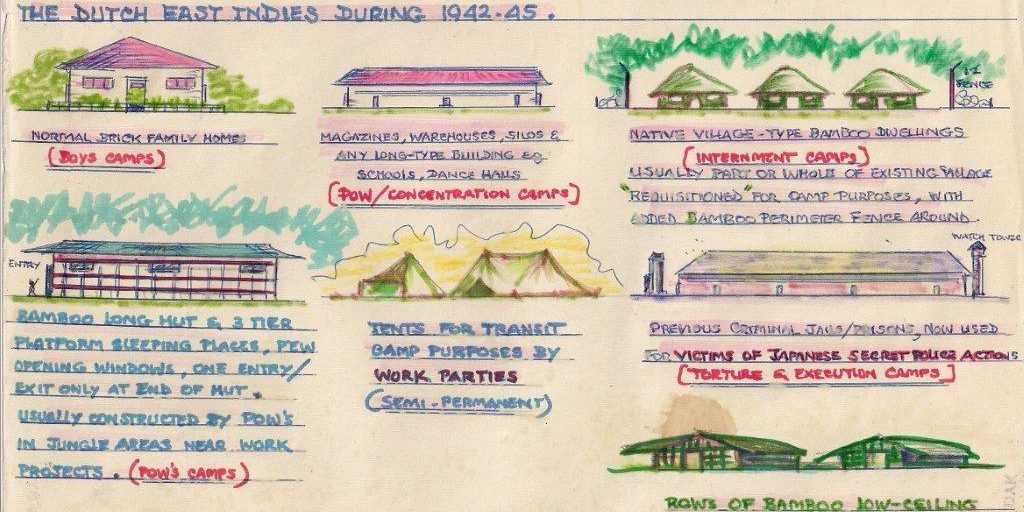 THE DUTCH EAST INDIES DURING 1942-45.
NORMAL BRICK FAMILY HOMES
(BOYS CAMPS)
MAGAZINES, WAREHOUSES, SILOS &
ANY LONG-TYPE BUILDING EG
SCHOOLS, DANCE HALLS
(POW/CONCENTRATION CAMPS)
FENCE
NATIVE VILLAGE-TYPE BAMBOO DWELLINGS
(INTERNMENT CAMPS)
USUALLY PART OR WHOLE OF EXISTING VILLAGE
"REQUISITIONED" FOR CAMP PURPOSES, WITH
ADDED BAMBOO PERIMETER FENCE AROUND.
ENTRY
BAMBOO LONG HUT & 3 TIER
PLATFORM SLEEPING PLACES, FEW
OPENING WINDOWS, ONE ENTRY/
EXIT ONLY AT END OF HUT.
USUALLY CONSTRUCTED BY POW'S
IN JUNGLE AREAS NEAR WORK
PROJECTS. (POW'S CAMPS)
TENTS FOR TRANSIT
CAMP PURPOSES BY
WORK PARTIES
(SEMI-PERMANENT)
WATCH TOWER
PREVIOUS CRIMINAL JAILS/PRISONS, NOW USED
FOR VICTIMS OF JAPANESE SECRET POLICE ACTIONS
(TORTURE & EXECUTION CAMPS)
ROWS OF BAMBOO LOW-CEILING